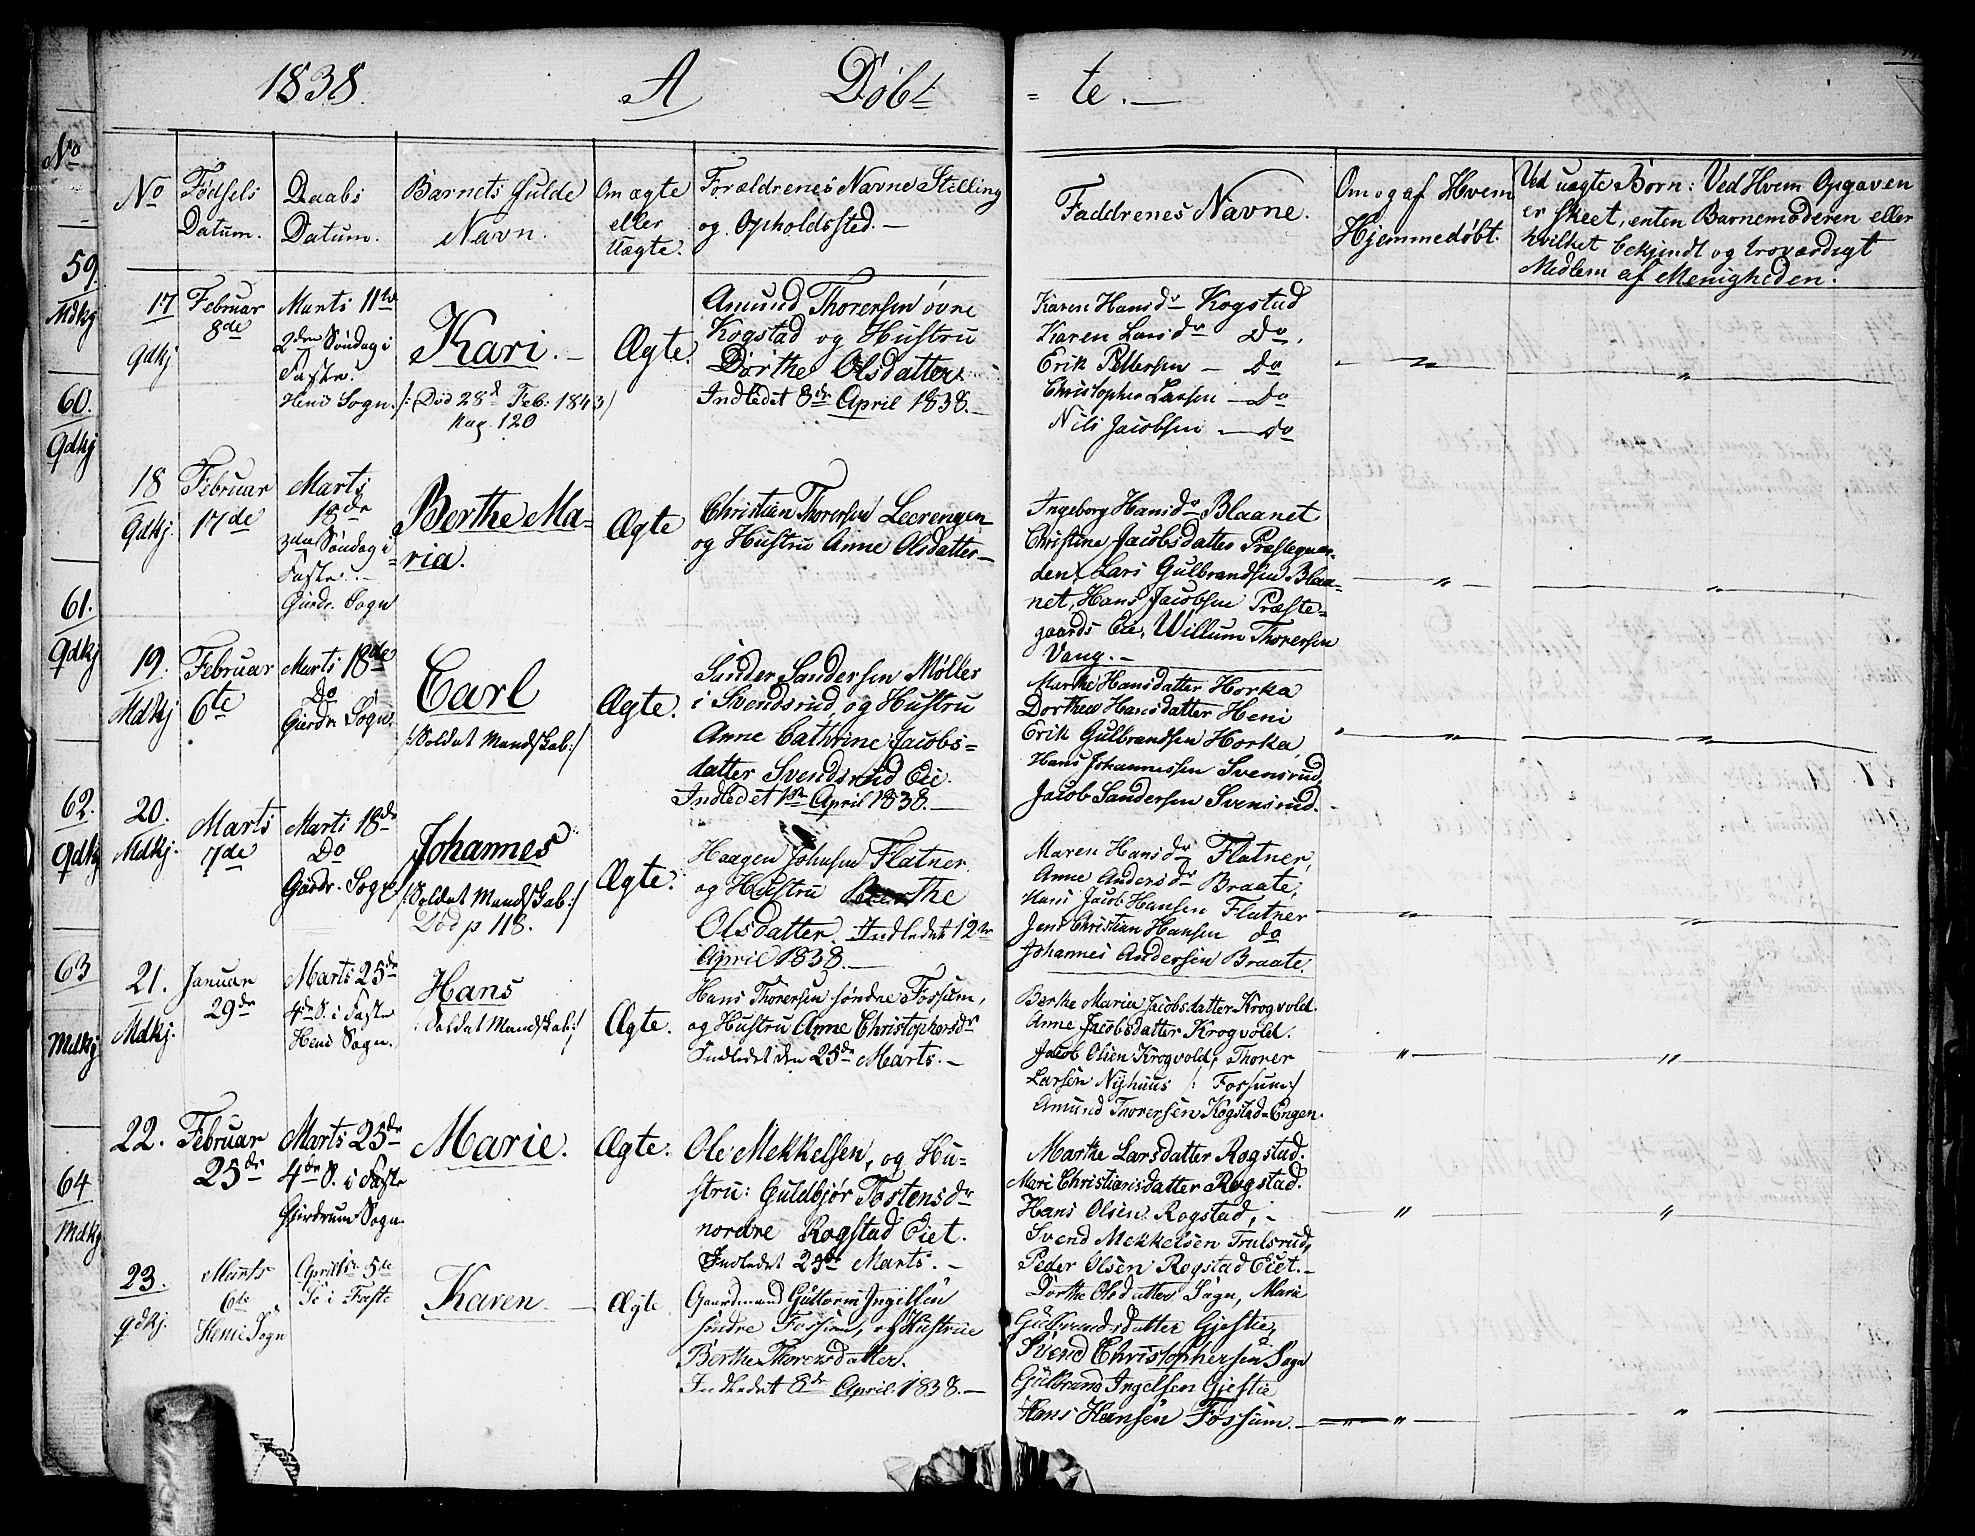 1838. A Døbt
= te. —
No
59.
Mdkj
60.
Qdkj
61.
Qdkj
62.
Qdkj
63
Mdkj
64
Mdkj
No
Fødsels
Datum.
Daabs
Datum.
Barnets fulde
Navn.
Om ægte
eller
Uægte.
Forældrenes Navne Stilling
og Opholdssted. —
Faddrenes Navne.
Om og af Hvem
Hjemmedøbt.
Ved uægte Børn: Ved Hvem Opgaven
er skeet, enten Barnemoderen eller
hvilket bekjendt og troværdigt
Medlem af Menigheden.
17
Qdkj
Februar
8de
Marts 11te
2den Søndag i
Faste.
Heni Sogn.
Kari. —
/: Død 28d Feb. 1843/
pag. 120
Ægte.
Amund Thorersen øvre
Kogstad og Hustru
Dorthe Olsdatter
Indledet 8de April 1838. —
Karen Hansdr Kogstad
Karen Larsdr Do,
Erik Pettersen — Do
Christopher Larsen — Do
Nils Jacobsen — Do
18
Qdkj.
Februar
17de
Marts
18de
3die Søndag i
Faste. —
Gjerdr. Sogn
Berthe Ma=
ria.
Ægte
Christian Thorersen Leerengen
og Hustru Anne Olsdatter —
Ingeborg Hansdr Blaanet
Christine Jacobsdatter Præstegaar=
den, Lars Gulbrandsen Blaa=
net, Hans Jacobsen Præste=
gaards Eie, Willum Thorersen
Vang. —
19.
Mdkj
Februar
6te
Marts 18de
Do
Gjerdr. Sogn
Carl
/: Soldat Mandskab :/
Ægte.
Sander Sandersen Møller
i Svendsrud og Hustru
Anne Cathrine Jacobs=
datter Svendsrud Eie.
Indledet 1ste April 1838. —
Marthe Hansdatter Horka
Dorthea Hansdatter Heni
Erik Gulbrandsen Horka,
Hans Johannessen Svensrud,
Jacob Sandersen Svensrud. —
20.
Mdkj.
Marts
7de
Marts 18de
Do
Gjerdr. Sogn
Johannes
/: Soldat Mandskab :/
Død p 118.
Ægte.
Haagen Johnsen Flatner
og Hustru Berthe
Olsdatter. Indledet 12te
April 1838. —
Maren Hansdr Flatner,
Anne Andersdr Braate,
Hans Jacob Hansen Flatner
Jens Christian Hansen do
Johannes Andersen Braate.
21.
Mdkj.
Januar
29de
Marts 25de
4de S. i Faste
Heni Sogn.
Hans
/: Soldat Mandskab :/
Ægte.
Hans Thorersen søndre Fossum,
og Hustru Anne Christophersdr
Indledet den 25de Marts. —
Berthe Maria Jacobsdatter Krogvold.
Anne Jacobsdatter Krogvold.
Jacob Olsen Krogvold, Thorer
Larsen Nyhuus /: Fossum :/
Amund Thorersen Kogstad=Engen.
22.
Februar
25de
Marts 25de
4de S. i Faste
Gjerdrum Sogn
Marie.
Ægte.
Ole Mekkelsen, og Hu=
stru: Guldbjør Tostensdr
nordre Rogstad Eiet.
Indledet 25de Marts. —
Marthe Larsdatter Rogstad.
Mari Christiansdatter Rogstad.
Hans Olsen Rogstad, —
Svend Mekkelsen Trulsrud,
Peder Olsen Rogstad Eiet. —
23.
Qdkj.
Marts
6te
Heni Sogn
April 5te
S. i Faste
Karen. —
Ægte
Gaardmand Guttorm Ingelsen
søndre Fossum, og Hustrue
Berthe Thorersdatter.
Indledet 8de April 1838. —
Dorthe Olsdatter Sagn, Marie
Gulbrandsdatter Gjestie,
Svend Christophersen Sagn
Gulbrand Ingelsen Gjestie
Hans Hansen Fossum. —